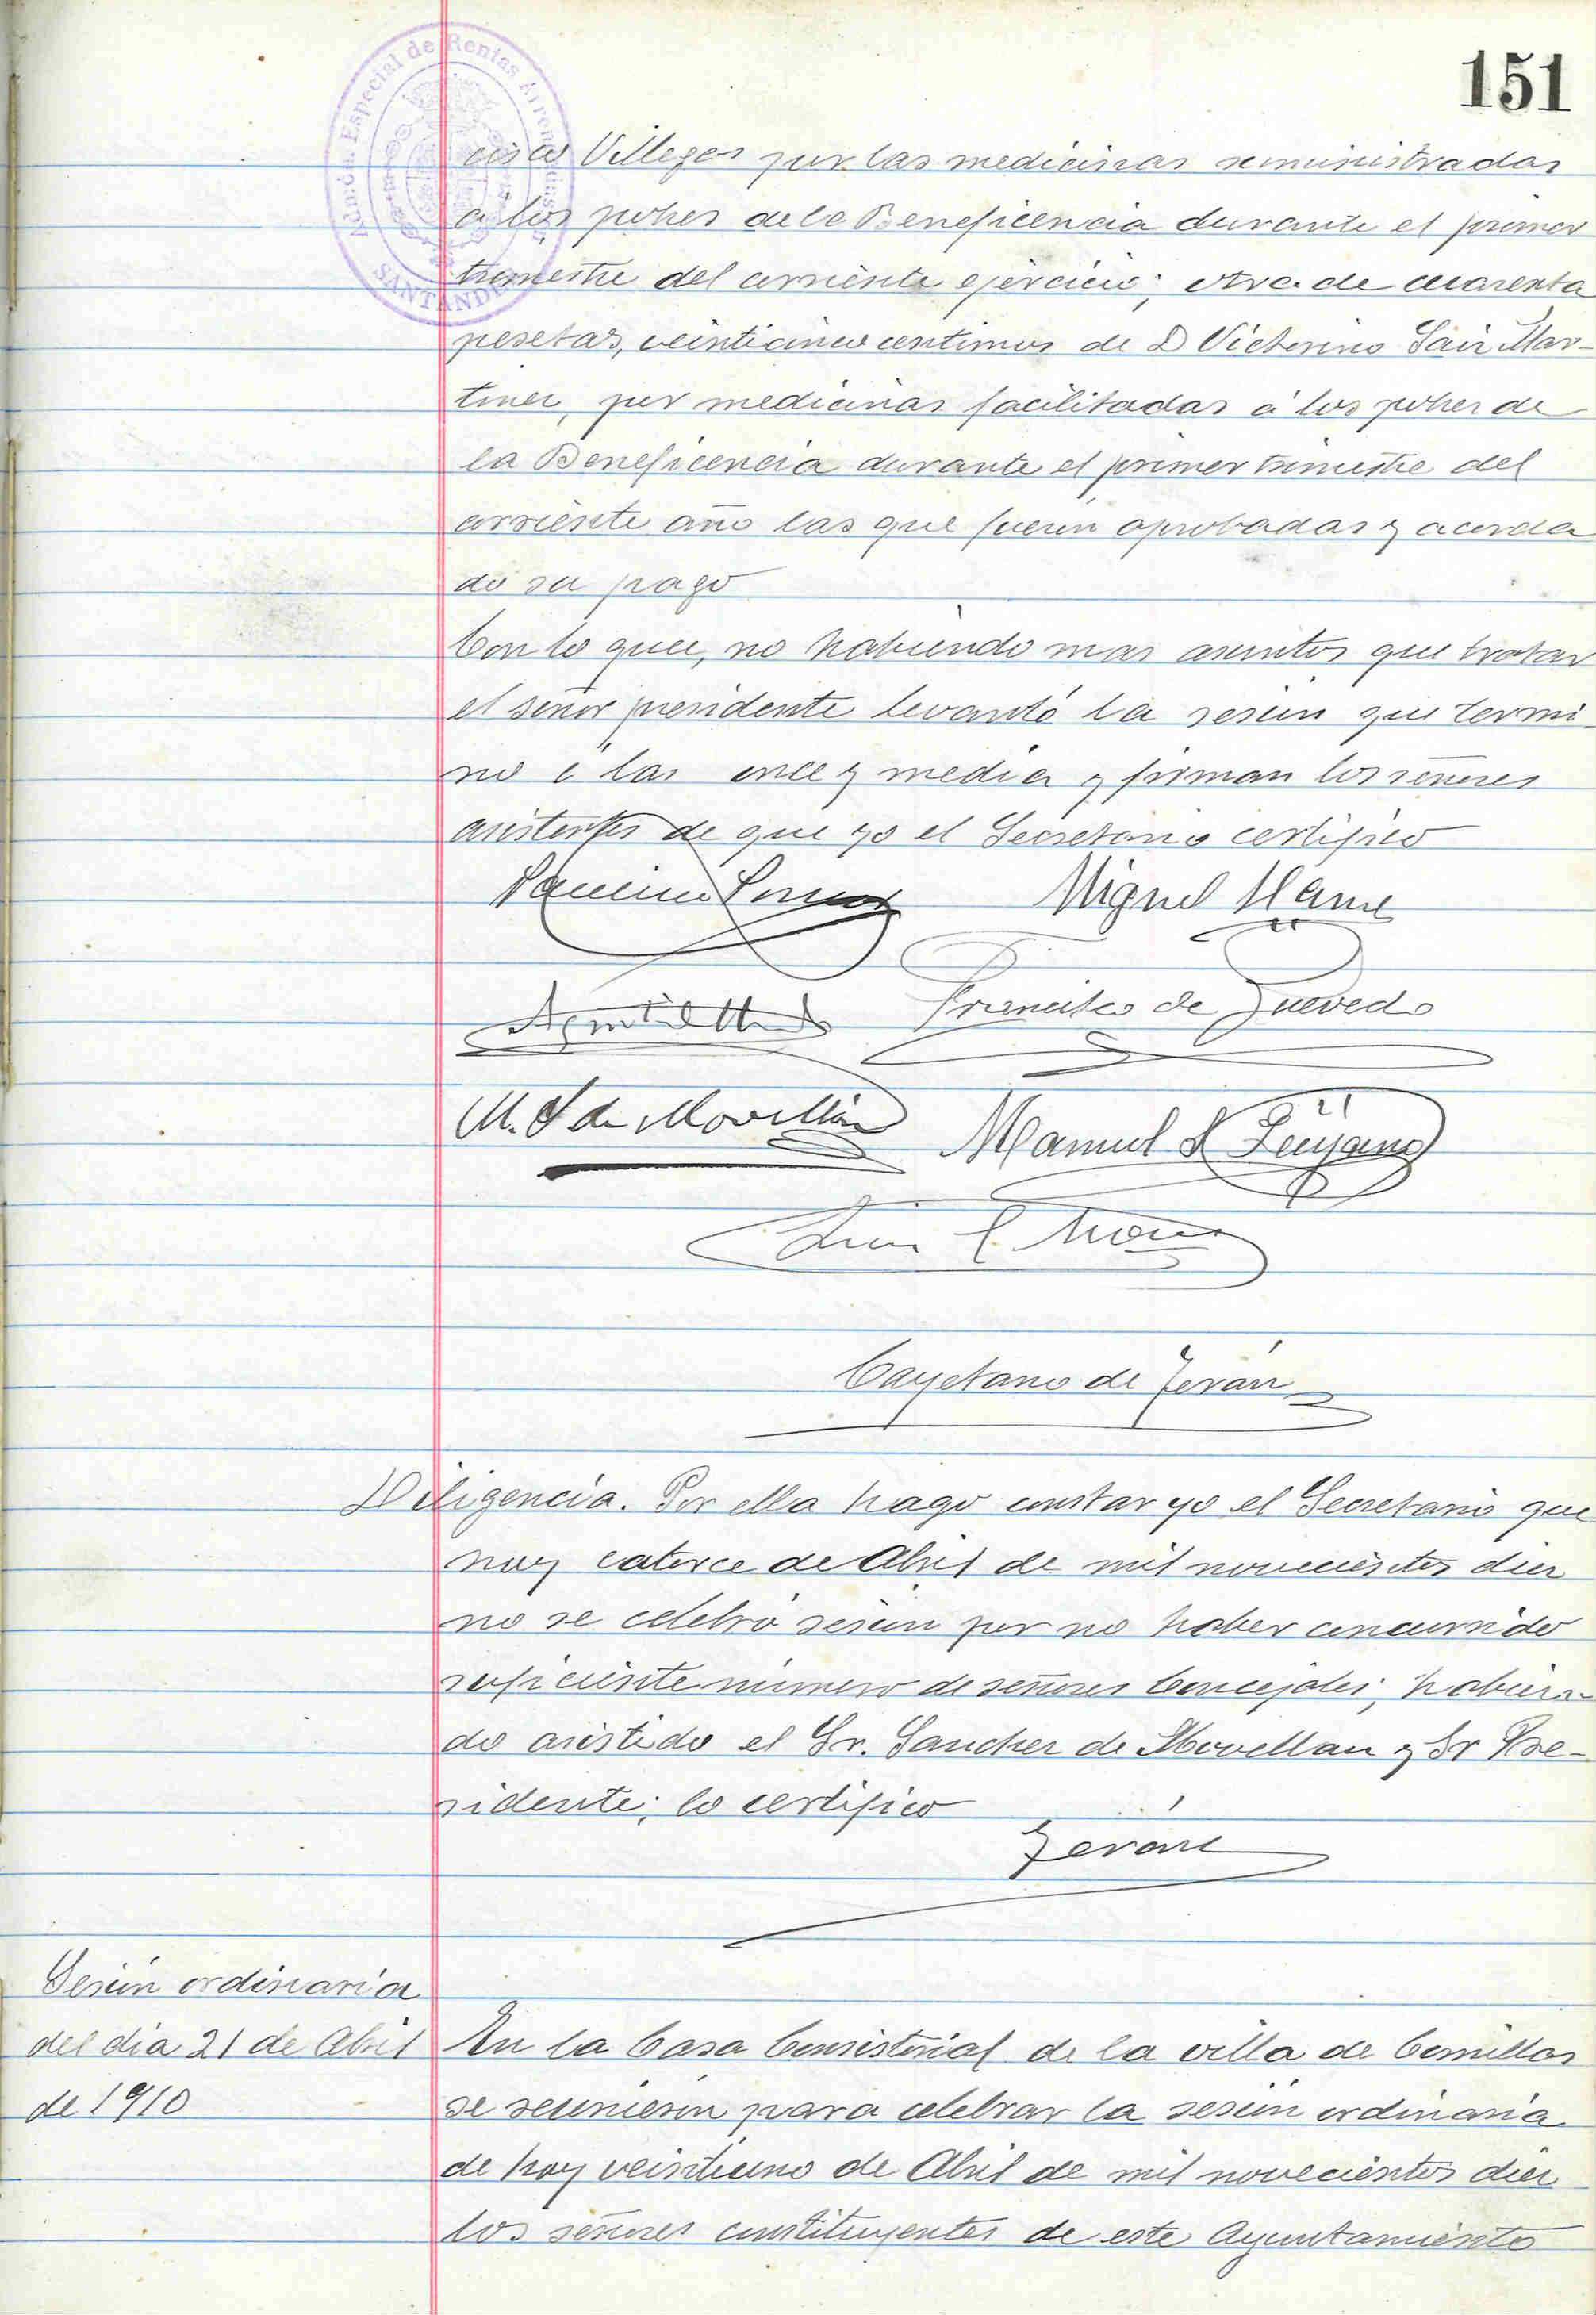 151
Admón. Especial de Rentas Arrendadas
SANTANDER
cisco Villegas por las medicinas suministradas
a los pobres de la Beneficencia durante el primer
trimestre del corriente ejercicio; otra de cuarenta
pesetas, veinticinco centimos de D Victorino Saiz Mar-
tinez, por medicinas facilitadas á los pobres de
la Beneficencia durante el primer trimestre del
corriente año las que fueron aprobadas y acorda
do su pago
Con lo que, no habiendo mas asuntos que tratar
el señor presidente levantó la sesión que termi
no á las once y media y firman los señores
asistentes de que yo el Secretario certifico
Miguel
Francisco de Quevedo
M. S de Movellán
Manuel
Luis
Cayetano de Terán
Diligencia. Por ella hago constar yo el Secretario que
hoy catorce de Abril de mil novecientos diez
no se celebró sesión por no haber concurrido
suficiente número de señores Concejales; habien-
do asistido el Sr. Sanchez de Movellan y Sr Pre-
sidente; lo certifico
Terán
Sesión ordinaria
del dia 21 de Abril
de 1910
En la Casa Consistorial de la villa de Comillas
se reunieron para celebrar la sesión ordinaria
de hoy veintiuno de Abril de mil novecientos diez
los señores constituyentes de este Ayuntamiento